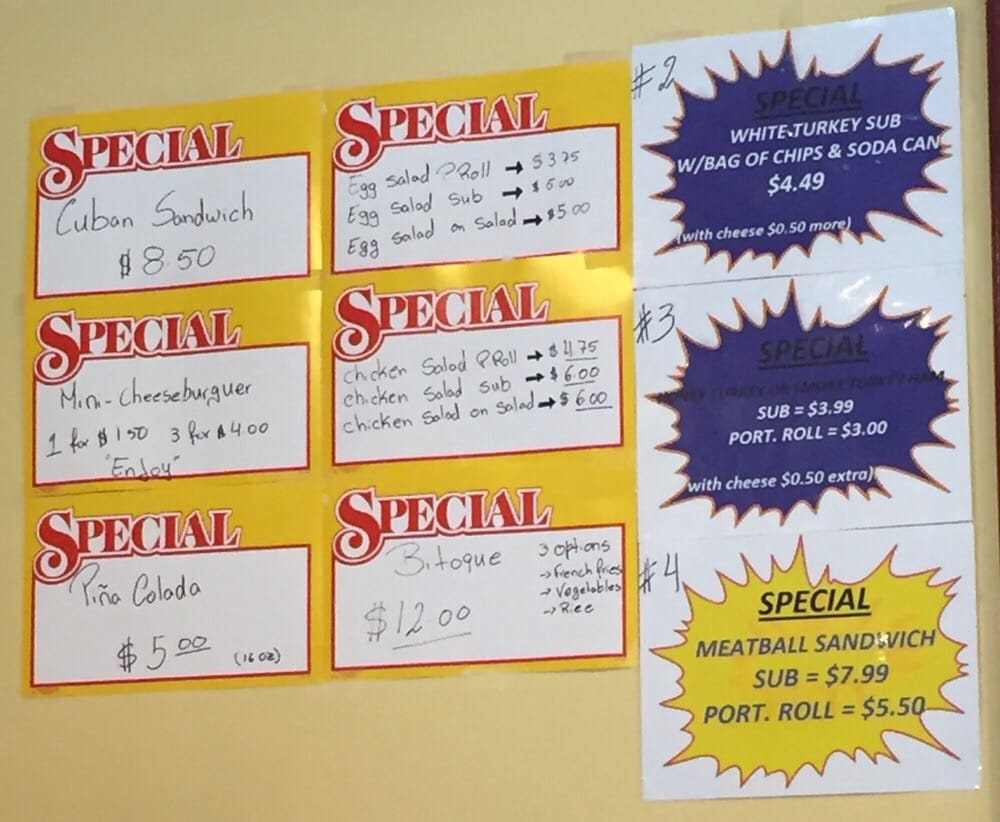 SPECIAL
Cuban Sandwich
$8.50
SPECIAL
Egg Salad P Roll → $3.75
Egg Salad Sub → $5.00
Egg Salad on Salad → $5.00
#2
SPECIAL
WHITE TURKEY SUB
W/BAG OF CHIPS & SODA CAN
$4.49
(with cheese $0.50 more)
SPECIAL
Mini-Cheeseburguer
1 for $1.50 3 for $4.00
"Enjoy"
SPECIAL
chicken Salad P Roll → $4.75
chicken Salad Sub → $6.00
chicken Salad on Salad → $6.00
#3
SPECIAL
HONEY TURKEY OR SMOKE TURKEY HAM
SUB = $3.99
PORT. ROLL = $3.00
with cheese $0.50 extra)
SPECIAL
Piña Colada
$5.00 (16 oz)
SPECIAL
Bitoque
$12.00
3 options
→ French fries
→ Vegetables
→ Rice
#4
SPECIAL
MEATBALL SANDWICH
SUB = $7.99
PORT. ROLL = $5.50